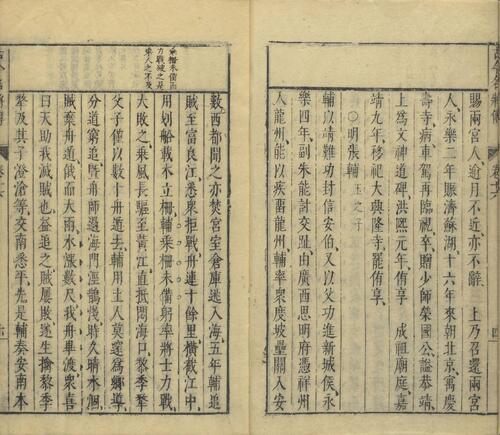 賜兩宮人逾月不近亦不辭　上乃召還兩宮
人永樂二年賑濟蘇湖十六年來朝北京寓慶
壽寺病車駕再臨視卒贈少師榮國公謚恭靖
上爲文神道碑洪熙元年侑享　成祖廟庭嘉
靖九年移祀大興隆寺罷侑享
○明張輔玉之子
輔以靖難功封信安伯又以父功進新城侯永
樂四年副朱能討交趾由廣西思明府憑祥州
入龍州能以疾留龍州輔率衆度坡壘關入安
乘柵未備而
力戰破之是
乘人之不及
數西都聞之亦焚宮室倉庫遁入海五年輔追
賊至富良江悉衆拒戰舟連十餘里橫截江中
用划船載木立柵輔乘柵未備躬率將士力戰
大敗之乘風長驅至黃江直抵悶海口黎季犛
父子僅以數十舟遁去輔用土人莫邃爲鄉導
分道窮追旣舟師還海門涇鸛淺時久晴水涸
賊棄舟遁俄而大雨水漲數尺我舟畢渡衆喜
曰天助我滅賊也益追之賊屢敗遂生擒黎季
犛及其子澄滄等交南悉平先是輔奏安南本